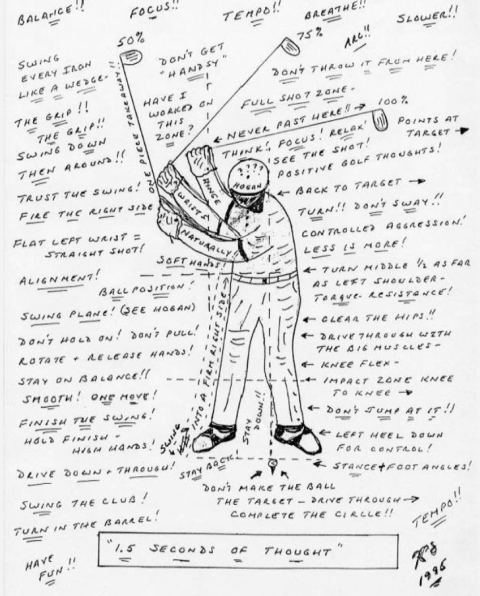 BALANCE!! FOCUS!! TEMPO!! BREATHE!! SLOWER!!
50%
75%
ARC!!
SWING
EVERY IRON
LIKE A WEDGE-
DON'T GET
"HANDSY"
DON'T THROW IT FROM HERE!
THE GRIP!!
THE GRIP!!
SWING DOWN
THEN AROUND!!
ONE PIECE TAKEAWAY!!
HAVE I
WORKED ON
THIS
ZONE?
FULL SHOT ZONE-
100%
← NEVER PAST HERE!! →
POINTS AT
TARGET →
THINK!, FOCUS! RELAX!
SEE THE SHOT!
POSITIVE GOLF THOUGHTS!
????
HOGAN
HINGE
WRISTS
NATURALLY!!
SOFT HANDS!
TRUST THE SWING!
FIRE THE RIGHT SIDE
FLAT LEFT WRIST =
STRAIGHT SHOT!
ALIGNMENT!
BALL POSITION!
SWING PLANE! (SEE HOGAN)
DON'T HOLD ON! DON'T PULL!
ROTATE + RELEASE HANDS!
STAY ON BALANCE!!
SMOOTH! ONE MOVE!
FINISH THE SWING!
HOLD FINISH -
HIGH HANDS!
DRIVE DOWN + THROUGH!
SWING THE CLUB!
TURN IN THE BARREL!
HAVE
FUN!!
← BACK TO TARGET →
TURN!! DON'T SWAY!!
CONTROLLED AGGRESSION!
LESS IS MORE!
← TURN MIDDLE 1/2 AS FAR
AS LEFT SHOULDER-
TORQUE- RESISTANCE!
← CLEAR THE HIPS!!
← DRIVE THROUGH WITH
THE BIG MUSCLES-
← KNEE FLEX-
← IMPACT ZONE KNEE
TO KNEE →
← DON'T JUMP AT IT!!
← LEFT HEEL DOWN
FOR CONTROL!
← STANCE + FOOT ANGLES!
SWING
INTO A FIRM RIGHT SIDE
STAY DOWN!!
STAY BACK!
DON'T MAKE THE BALL
THE TARGET - DRIVE THROUGH →
COMPLETE THE CIRCLE!!
TEMPO!!
"1.5 SECONDS OF THOUGHT"
1996